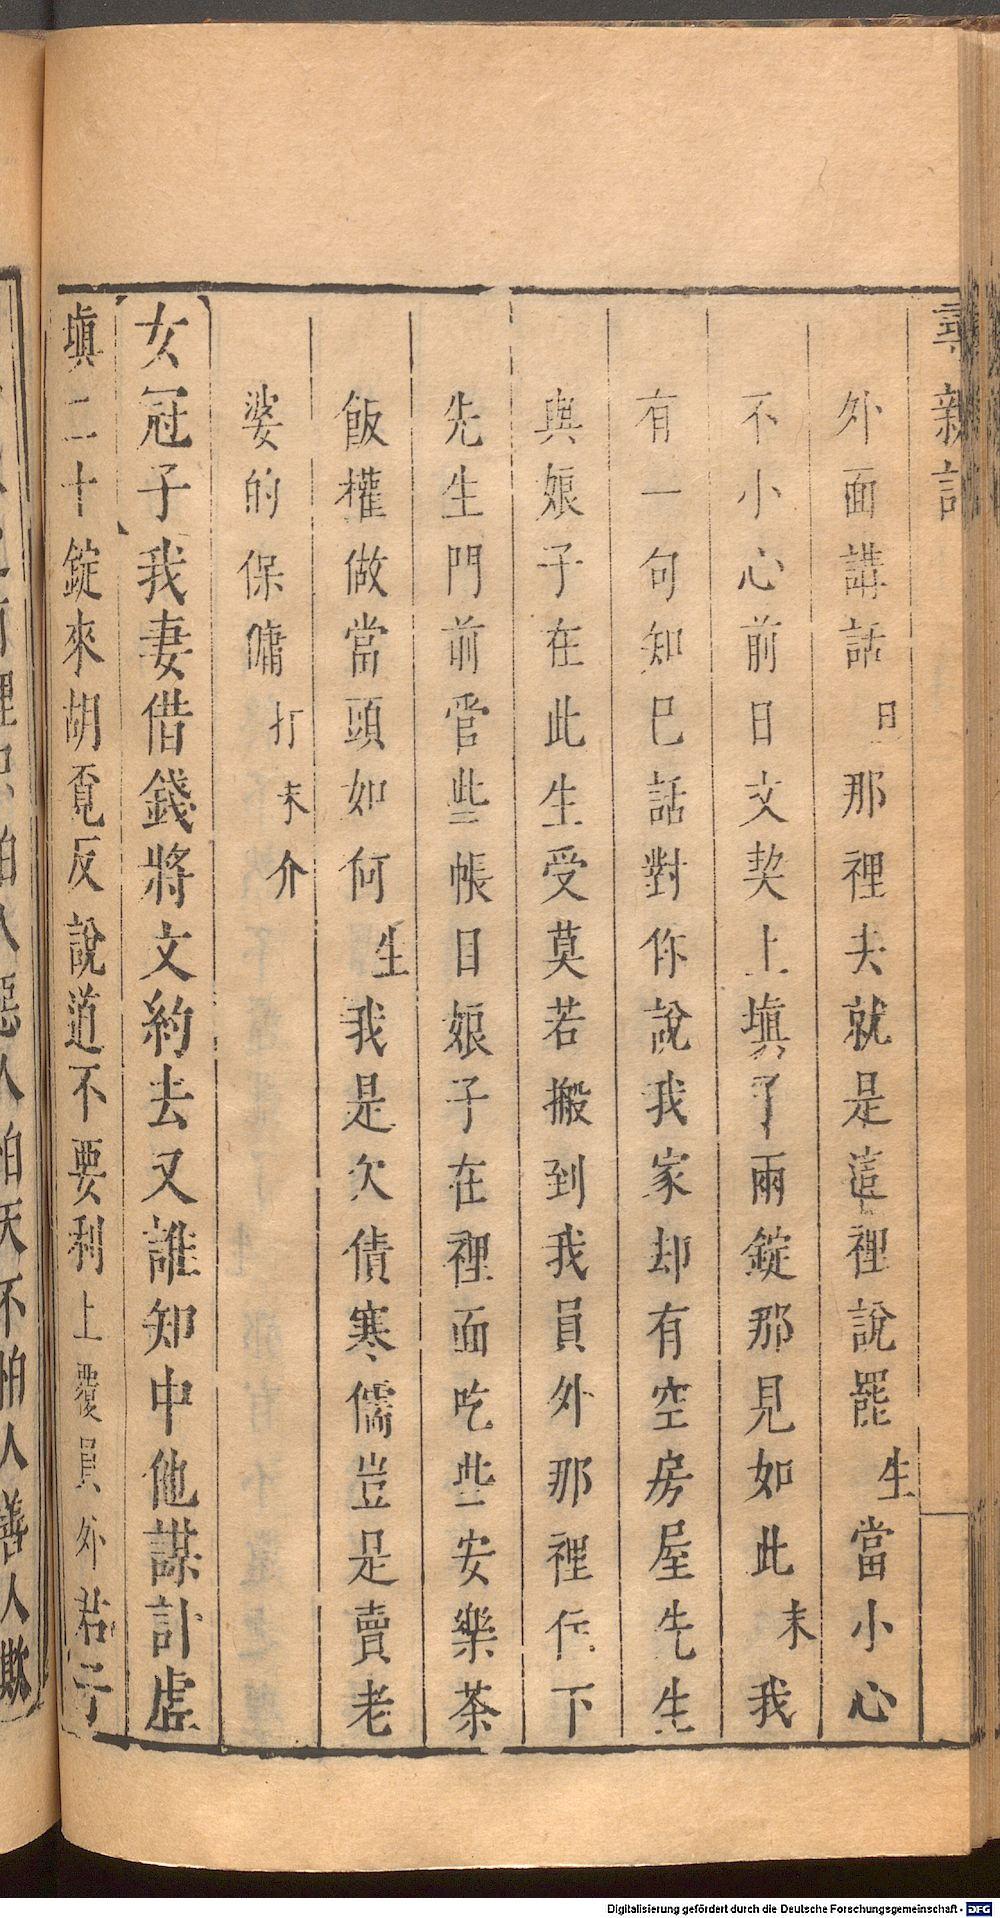 尋親記
外面講話旦那裡夫就是這裡說罷生當小心
不小心前日文契上填了兩錠那見如此末我
有一句知己話對你說我家却有空房屋先生
與娘子在此生受莫若搬到我員外那裡住下
先生門前管些帳目娘子在裡面吃些安樂茶
飯權做當頭如何生我是欠債寒儒豈是賣老
婆的保傭打末介
女冠子我妻借錢將文約去又誰知中他謀計虛
填二十錠來胡覔反說道不要利上覆員外君子
Digitalisierung gefördert durch die Deutsche Forschungsgemeinschaft - DFG